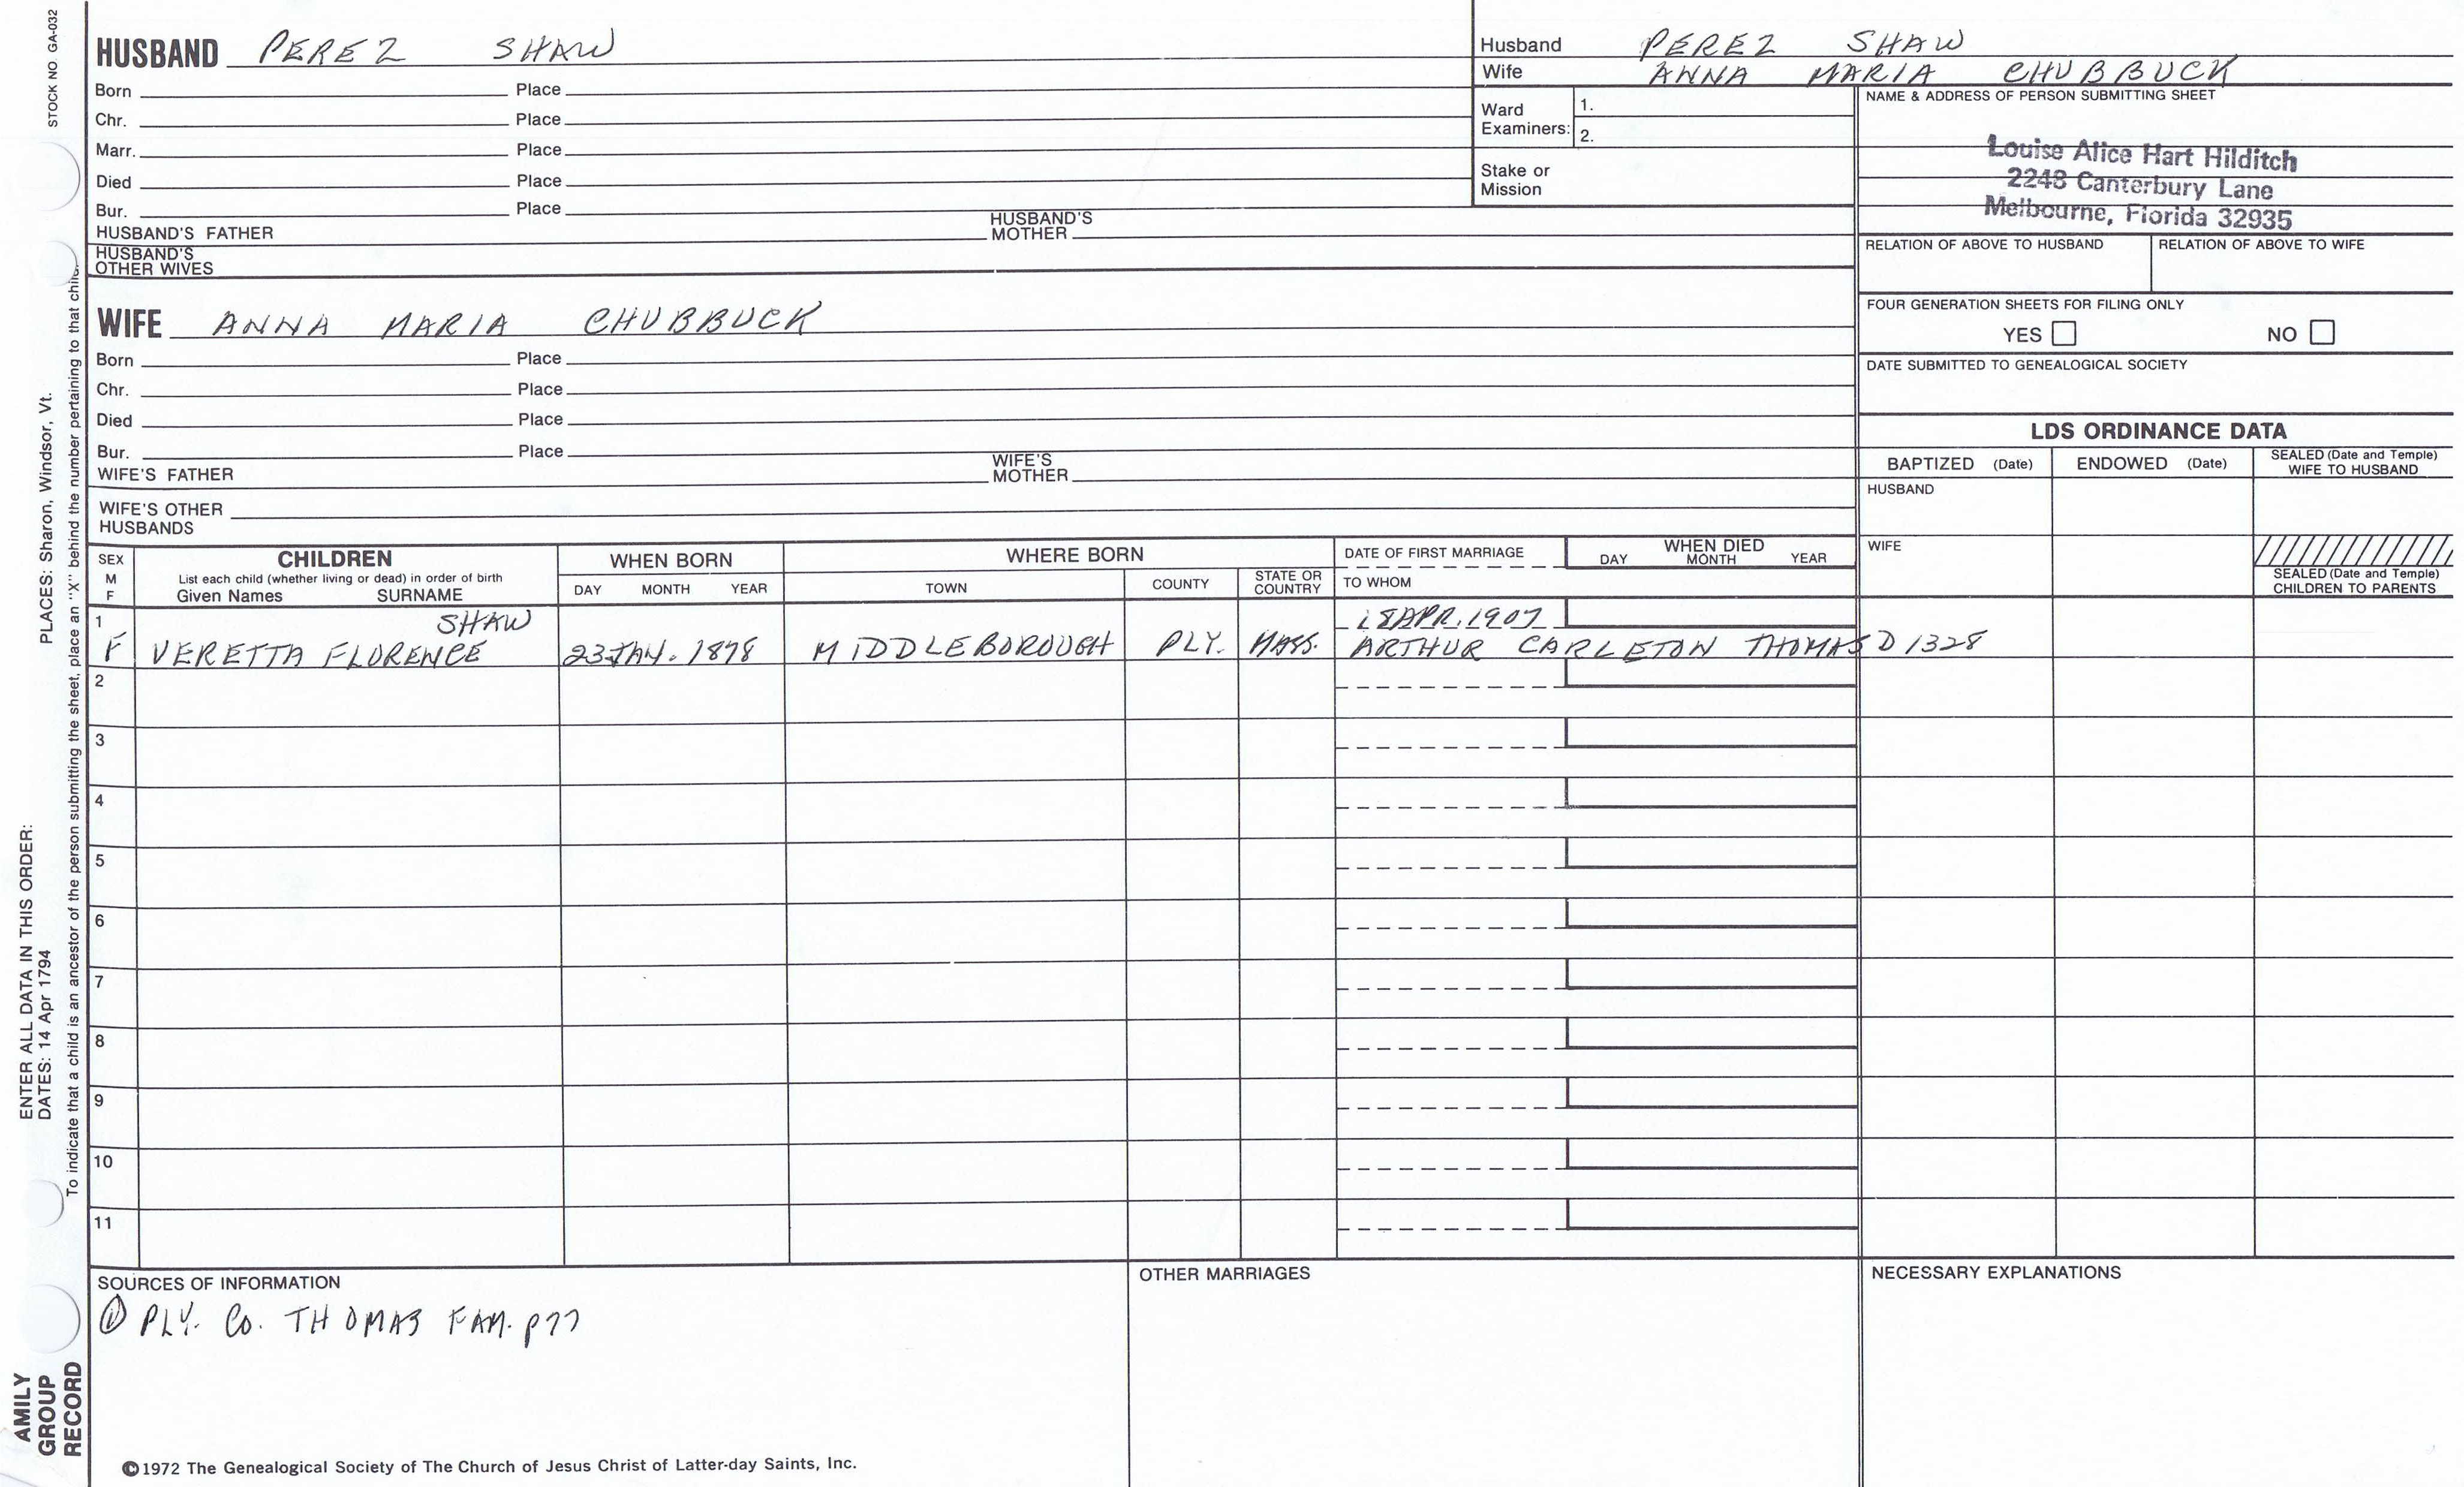 STOCK NO GA-032
HUSBAND PEREZ SHAW
Born Place
Chr. Place
Marr. Place
Died Place
Bur. Place
HUSBAND'S FATHER HUSBAND'S MOTHER
HUSBAND'S OTHER WIVES
WIFE ANNA MARIA CHUBBUCK
Born Place
Chr. Place
Died Place
Bur. Place
WIFE'S FATHER WIFE'S MOTHER
WIFE'S OTHER HUSBANDS
Husband PEREZ SHAW
Wife ANNA MARIA CHUBBUCK
Ward Examiners: 1.
2.
Stake or Mission
NAME & ADDRESS OF PERSON SUBMITTING SHEET
Louise Alice Hart Hilditch
2248 Canterbury Lane
Melbourne, Florida 32935
RELATION OF ABOVE TO HUSBAND RELATION OF ABOVE TO WIFE
FOUR GENERATION SHEETS FOR FILING ONLY
YES NO
DATE SUBMITTED TO GENEALOGICAL SOCIETY
LDS ORDINANCE DATA
BAPTIZED (Date) ENDOWED (Date) SEALED (Date and Temple) WIFE TO HUSBAND
HUSBAND
WIFE
SEALED (Date and Temple) CHILDREN TO PARENTS
SEX M F
CHILDREN
List each child (whether living or dead) in order of birth
Given Names SURNAME
WHEN BORN
DAY MONTH YEAR
WHERE BORN
TOWN COUNTY STATE OR COUNTRY
DATE OF FIRST MARRIAGE
TO WHOM
WHEN DIED
DAY MONTH YEAR
1 SHAW 18 APR. 1907
F VERETTA FLORENCE 23 JAN. 1878 MIDDLEBOROUGH PLY. MASS. ARTHUR CARLETON THOMAS D 1328
2
3
4
5
6
7
8
9
10
11
SOURCES OF INFORMATION
① PLY. Co. THOMAS FAM. p77
OTHER MARRIAGES
NECESSARY EXPLANATIONS
©1972 The Genealogical Society of The Church of Jesus Christ of Latter-day Saints, Inc.
ENTER ALL DATA IN THIS ORDER:
DATES: 14 Apr 1794 PLACES: Sharon, Windsor, Vt.
To indicate that a child is an ancestor of the person submitting the sheet, place an "X" behind the number pertaining to that child.
AMILY
GROUP
RECORD